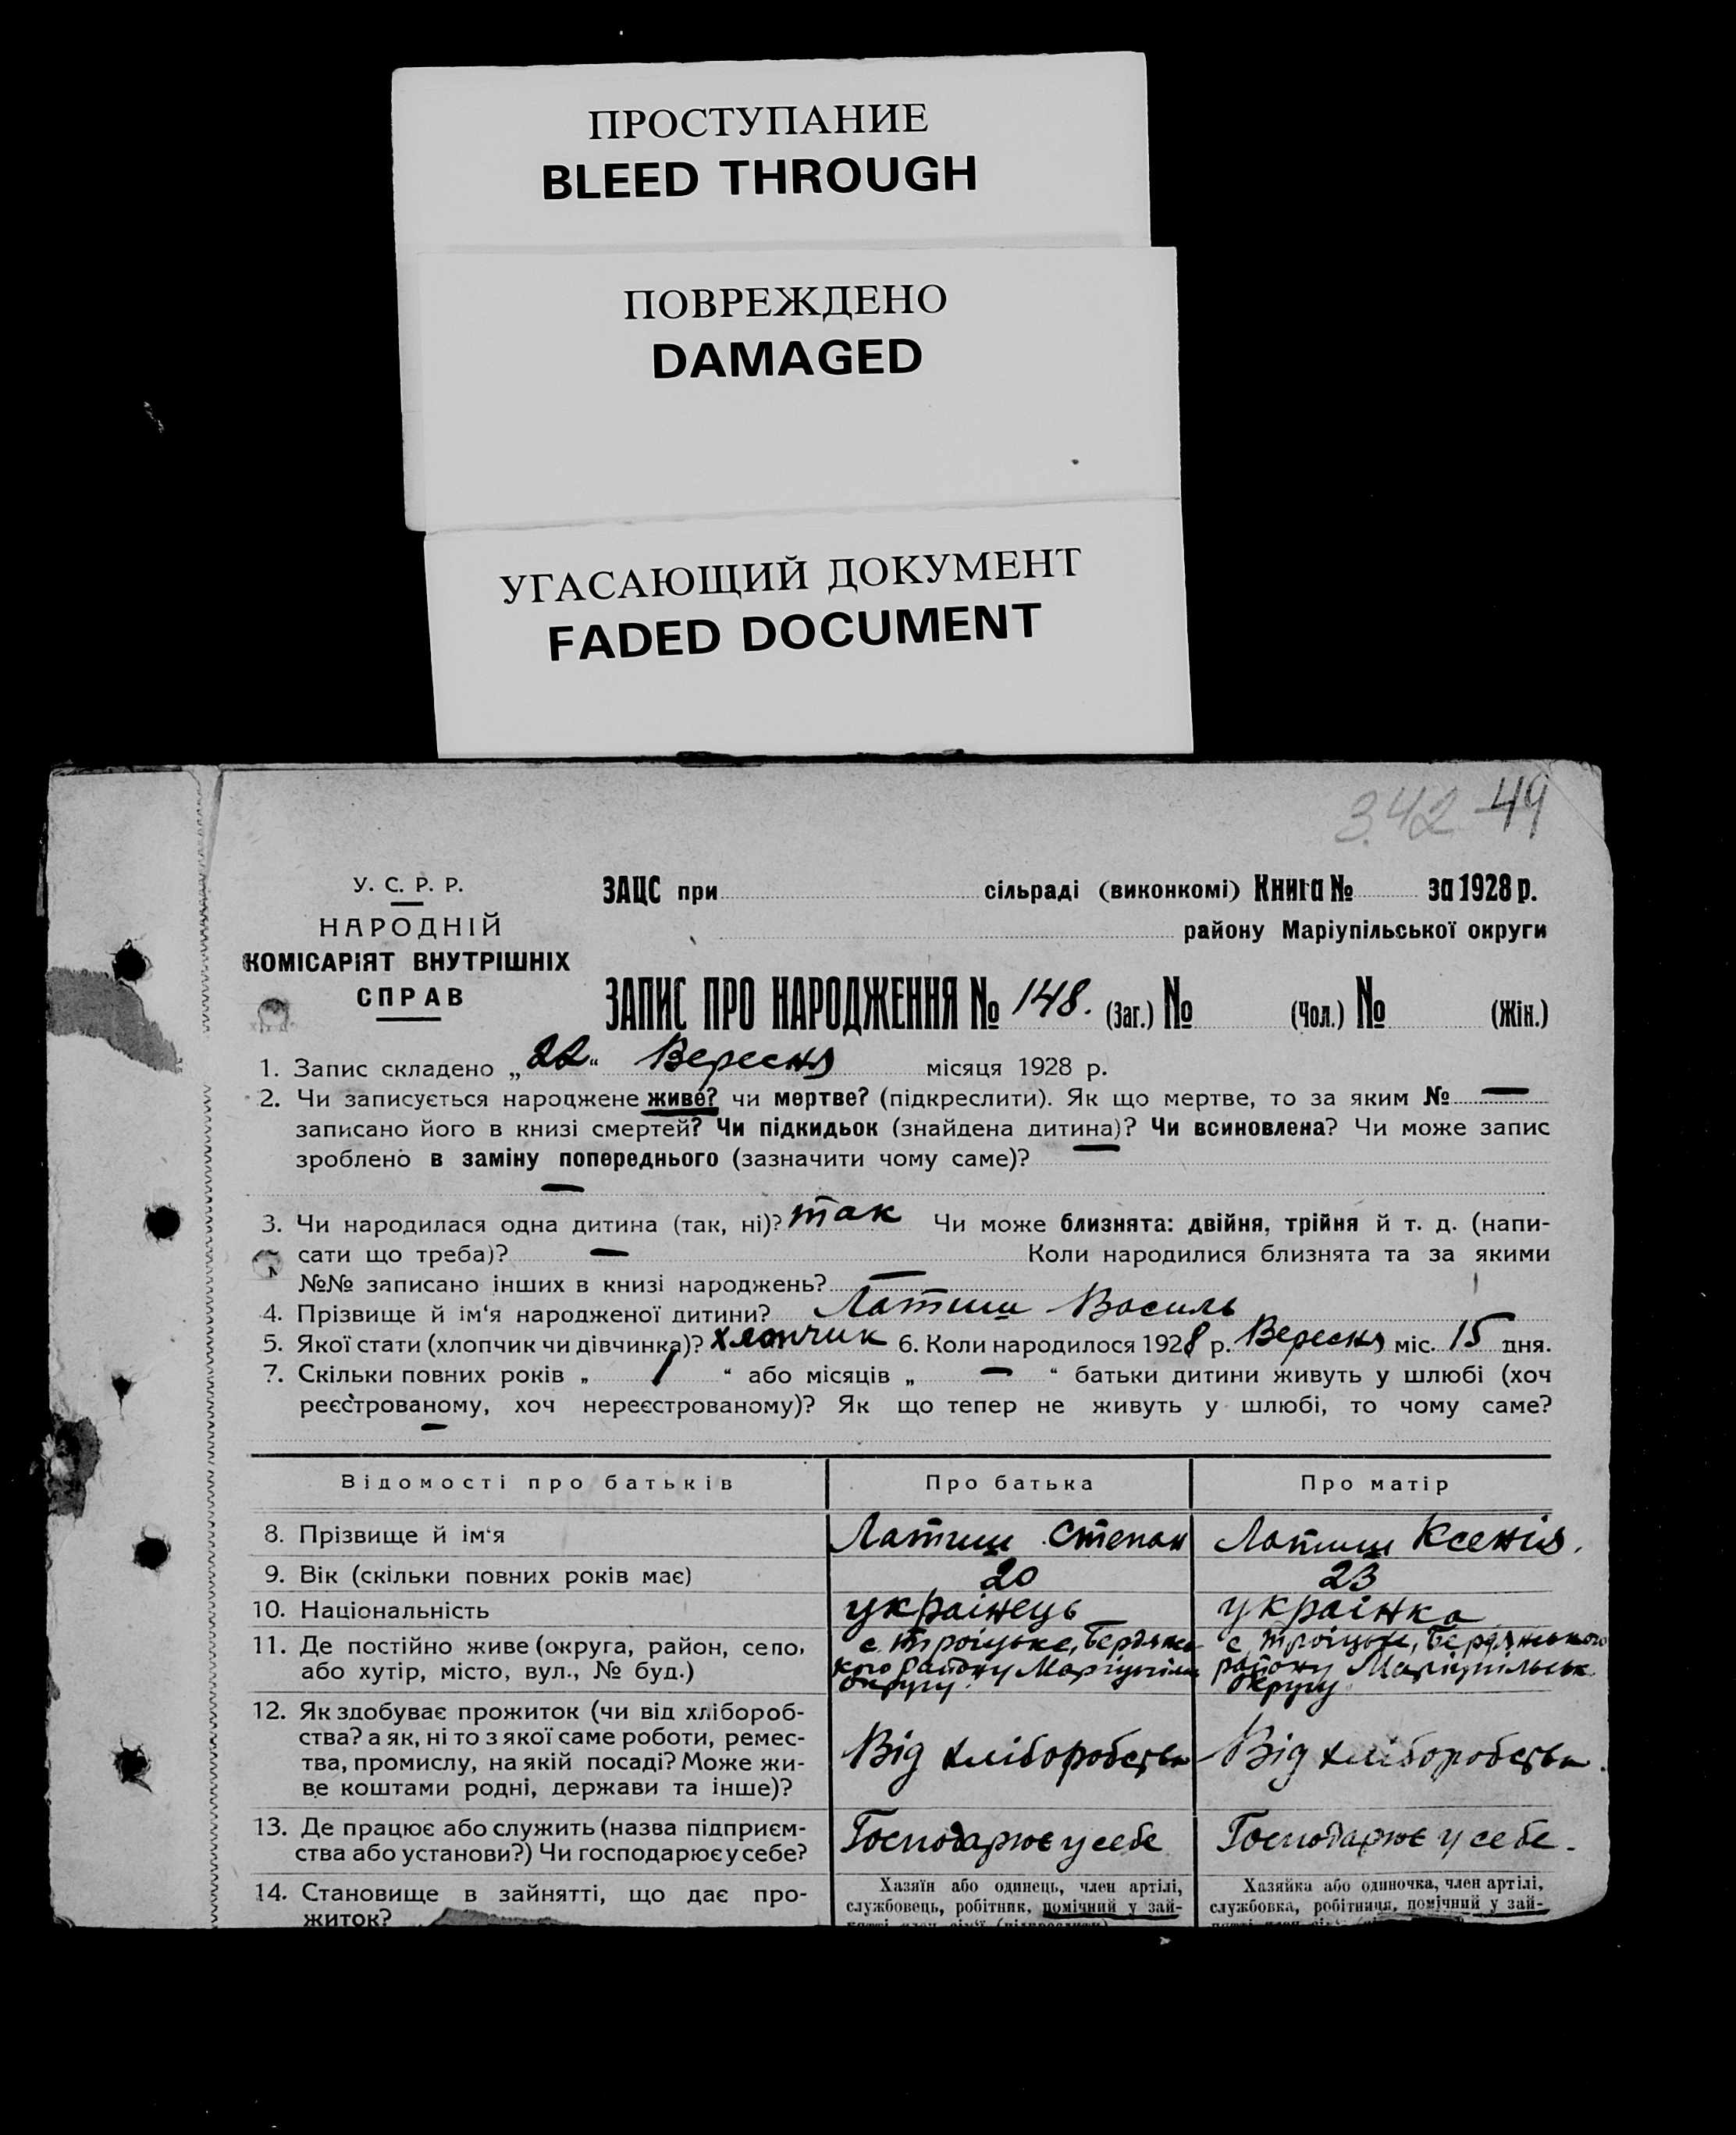 ПРОСТУПАНИЕ
BLEED THROUGH
ПОВРЕЖДЕНО
DAMAGED
УГАСАЮЩИЙ ДОКУМЕНТ
FADED DOCUMENT
342 49
У. С. Р. Р.
НАРОДНІЙ
КОМІСАРІЯТ ВНУТРІШНІХ
СПРАВ
ЗАЦС при сільраді (виконкомі) Книга № за 1928 р.
району Маріупільської округи
ЗАПИС ПРО НАРОДЖЕННЯ № 148. (Заг.) № (Чол.) № (Жін.)
1. Запис складено „22“ Вересня місяця 1928 р.
2. Чи записується народжене живе? чи мертве? (підкреслити). Як що мертве, то за яким № —
записано його в книзі смертей? Чи підкидьок (знайдена дитина)? Чи всиновлена? Чи може запис
зроблено в заміну попереднього (зазначити чому саме)? —
—
3. Чи народилася одна дитина (так, ні)? так Чи може близнята: двійня, трійня й т. д. (напи-
сати що треба)? — Коли народилися близнята та за якими
№№ записано інших в книзі народжень? —
4. Прізвище й ім‘я народженої дитини? Латиш Василь
5. Якої стати (хлопчик чи дівчинка)? хлопчик 6. Коли народилося 1928 р. Вересня міс. 15 дня.
7. Скільки повних років „ 1 “ або місяців „ — “ батьки дитини живуть у шлюбі (хоч
реєстрованому, хоч нереєстрованому)? Як що тепер не живуть у шлюбі, то чому саме?
—
Відомості про батьків Про батька Про матір
8. Прізвище й ім‘я Латиш Степан Латиш Ксенія.
9. Вік (скільки повних років має) 20 23
10. Національність українець українка
11. Де постійно живе (округа, район, село, с. Троїцьке, Бердянсь- с. Троїцьке, Бердянського
або хутір, місто, вул., № буд.) кого району Маріупільс району Маріупільськ.
округу. округу
12. Як здобуває прожиток (чи від хлібороб-
ства? а як, ні то з якої саме роботи, ремес-
тва, промислу, на якій посаді? Може жи- Від хліборобства Від хліборобства.
ве коштами родні, держави та інше)?
13. Де працює або служить (назва підприєм- Господарює у себе Господарює у себе.
ства або установи?) Чи господарює у себе?
14. Становище в зайнятті, що дає про- Хазяїн або одинець, член артілі, Хазяйка або одиночка, член артілі,
житок? службовець, робітник, помічний у зай- службовка, робітниця, помічний у зай-